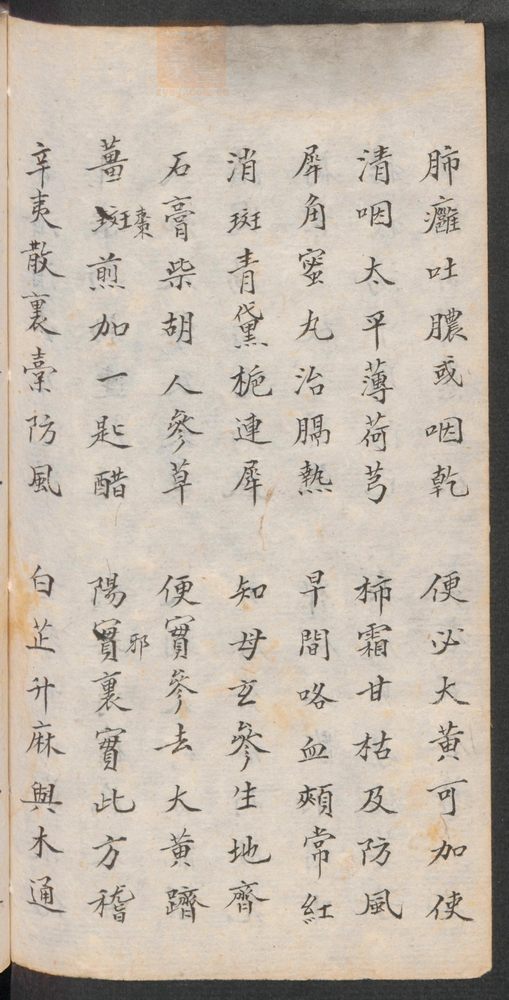 肺癰吐膿或咽乾 便必大黄可加使
清咽太平薄荷芎 柿霜甘枯及防風
犀角蜜丸治膈熱 早間咯血頰常紅
消斑青黛梔連犀 知母玄參生地齊
石膏柴胡人參草 便實參去大黄躋
薑斑棗煎加一匙醋 陽實邪裏實此方稽
辛夷散裏藁防風 白芷升麻與木通